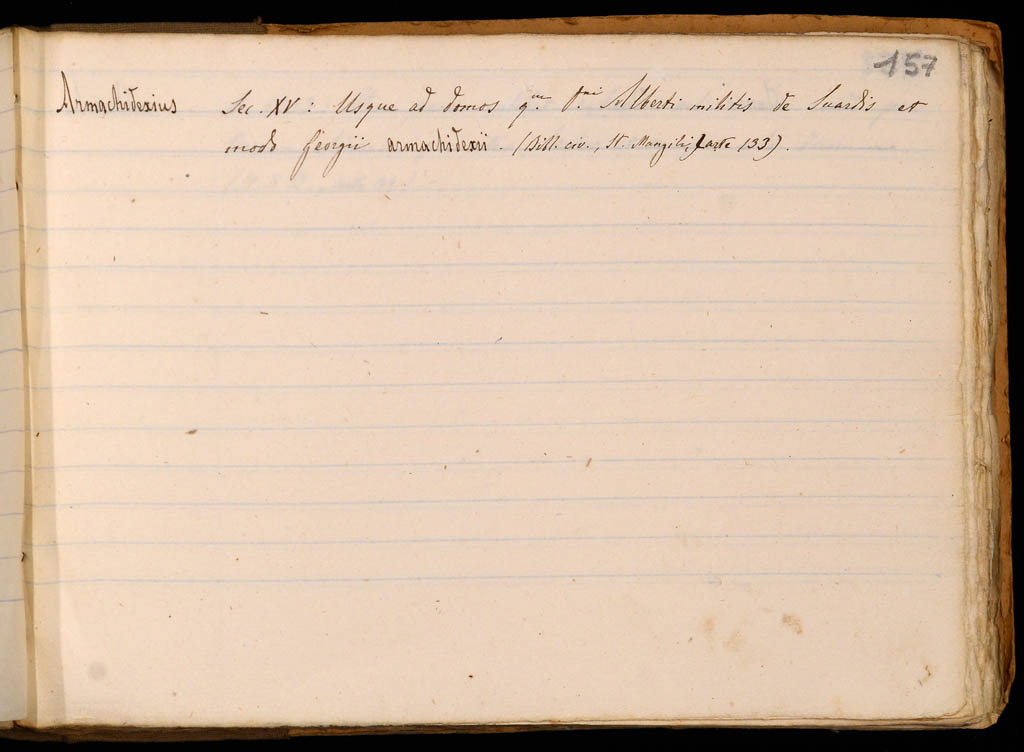 157
Armachidexius Sec. XV: Usque ad domos q.m D.ni Alberti militis de Suardis et
modo Georgii armachidexii. (Bibl. civ., St. Mangili, carte 133).